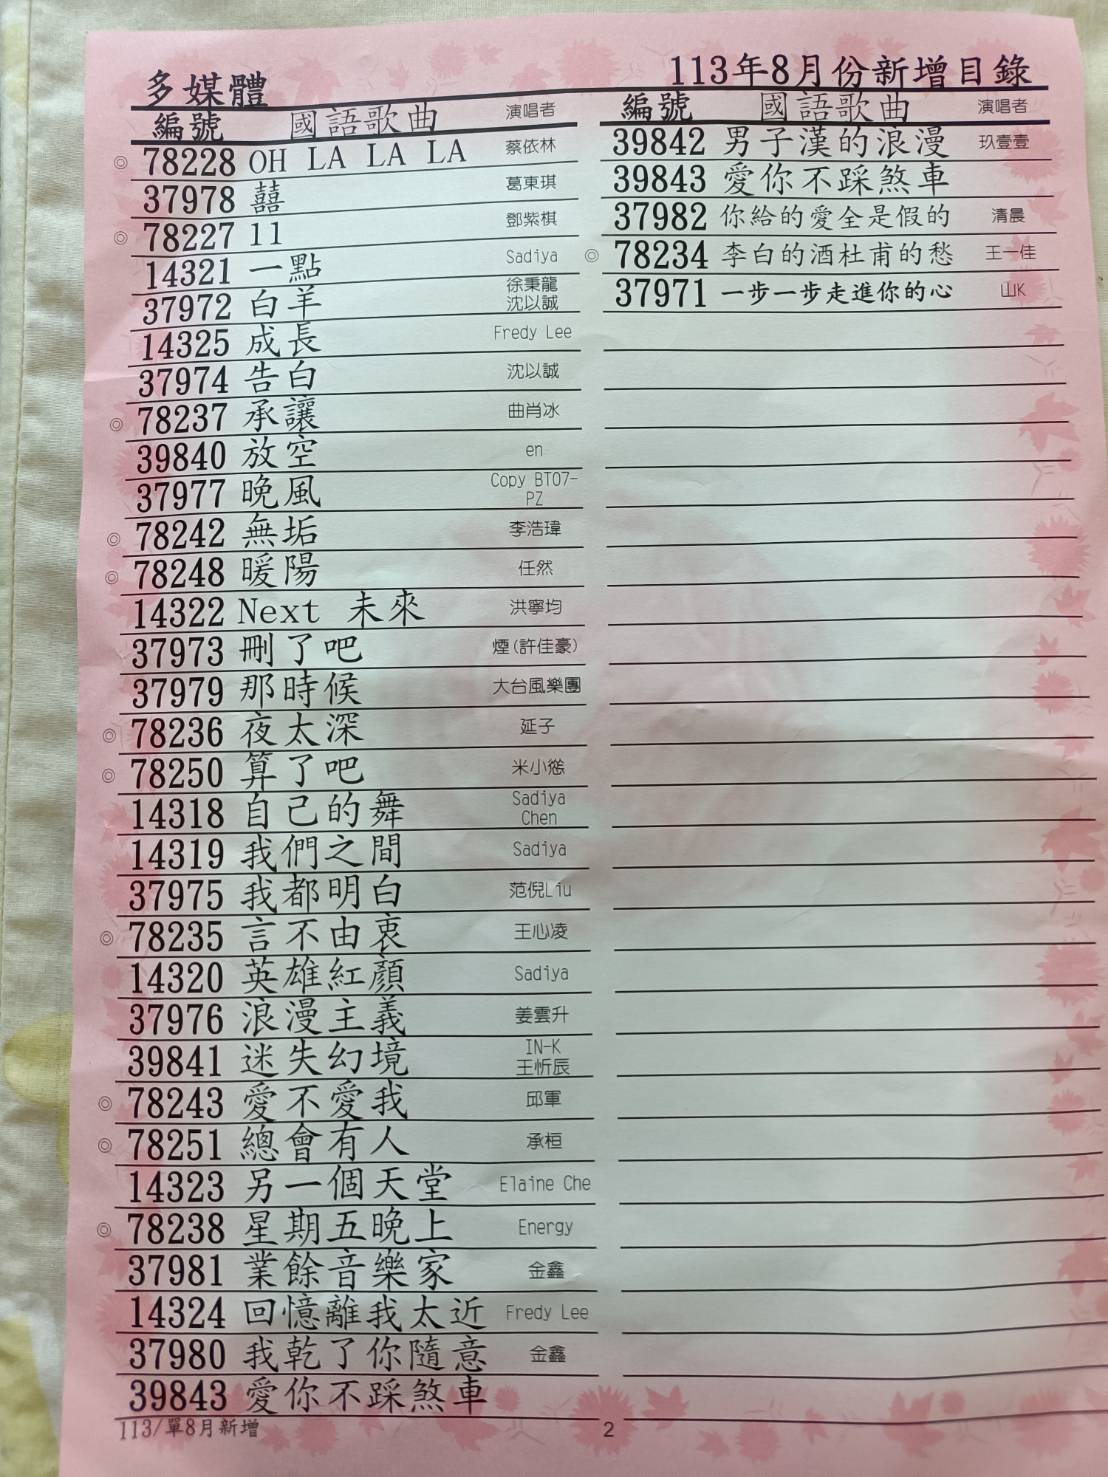 多媒體
113年8月份新增目錄
編號 國語歌曲 演唱者
◎ 78228 OH LA LA LA 蔡依林
37978 囍 葛東琪
◎ 78227 11 鄧紫棋
14321 一點 Sadiya
37972 白羊 徐秉龍 沈以誠
14325 成長 Fredy Lee
37974 告白 沈以誠
◎ 78237 承讓 曲肖冰
39840 放空 en
37977 晚風 Copy BT07-PZ
◎ 78242 無垢 李浩瑋
◎ 78248 暖陽 任然
14322 Next 未來 洪寧均
37973 刪了吧 煙(許佳豪)
37979 那時候 大台風樂團
◎ 78236 夜太深 延子
◎ 78250 算了吧 米小慫
14318 自己的舞 Sadiya Chen
14319 我們之間 Sadiya
37975 我都明白 范倪Liu
◎ 78235 言不由衷 王心凌
14320 英雄紅顏 Sadiya
37976 浪漫主義 姜雲升
39841 迷失幻境 IN-K 王忻辰
◎ 78243 愛不愛我 邱軍
◎ 78251 總會有人 承桓
14323 另一個天堂 Elaine Che
◎ 78238 星期五晚上 Energy
37981 業餘音樂家 金鑫
14324 回憶離我太近 Fredy Lee
37980 我乾了你隨意 金鑫
39843 愛你不踩煞車
編號 國語歌曲 演唱者
39842 男子漢的浪漫 玖壹壹
39843 愛你不踩煞車
37982 你給的愛全是假的 清晨
◎ 78234 李白的酒杜甫的愁 王一佳
37971 一步一步走進你的心 山K
113/單8月新增
2